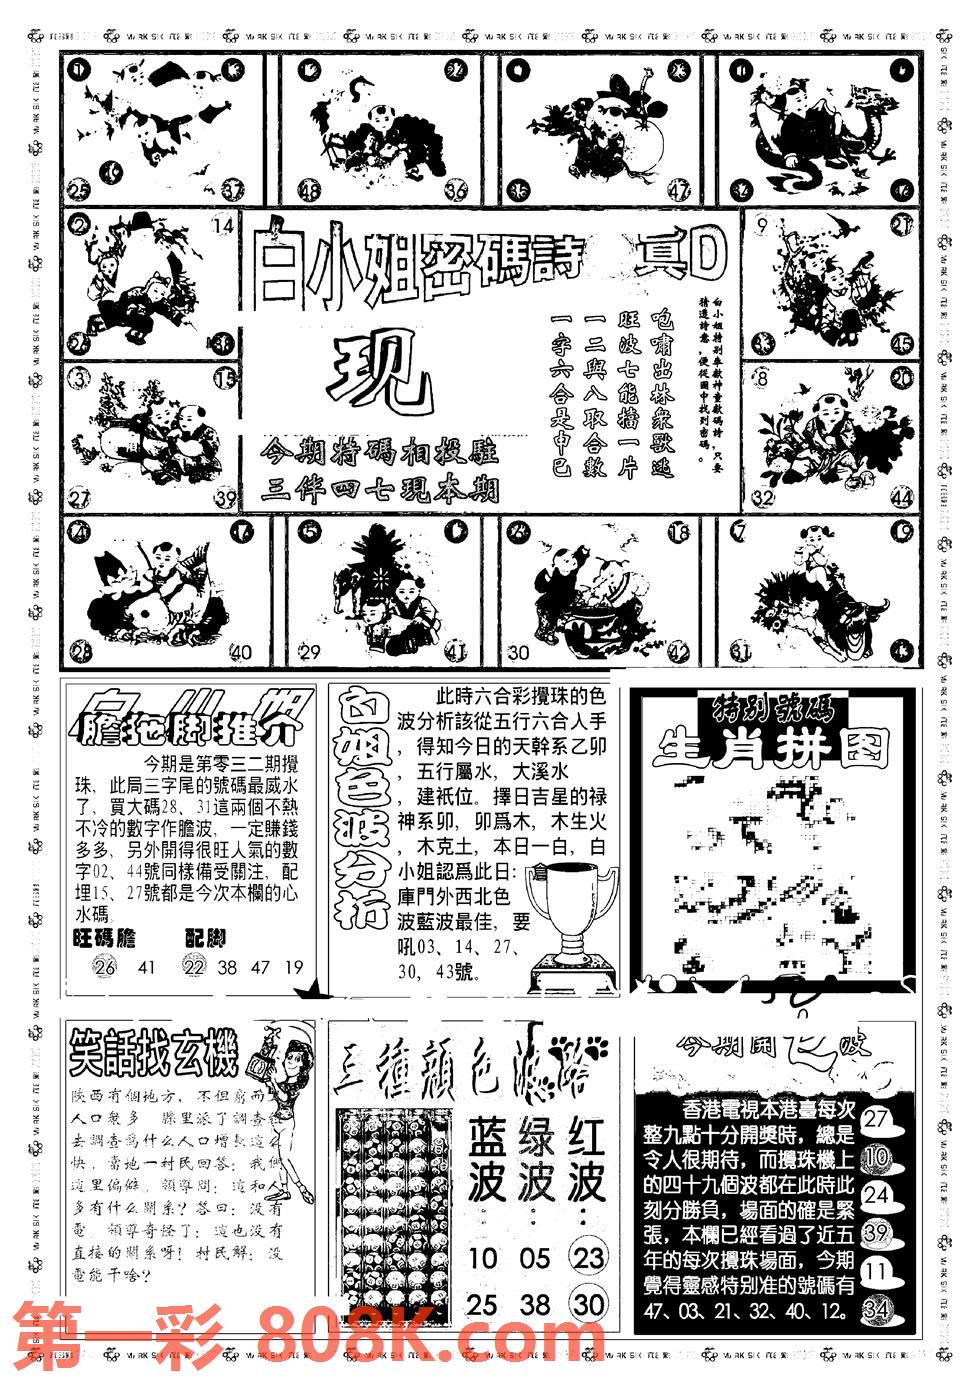 白小姐密碼詩 真D
白小姐特别奉獻神童献碼詩,只要
猜透詩意,便從圖中找到密碼。
咆嘯出林衆獸逃
旺波七能擋一片
一二與八取合數
一字六合是申巳
现
今期特碼相投駐
三伴四七現本期
25 37
48 36
35 47
2 14
9 21
45
3 15
27 39
8 20
32 44
28 40
5
29 41
18
30 42
7 19
31
膽拖脚推介
今期是第零三二期攪
珠，此局三字尾的號碼最威水
了，買大碼28、31這兩個不熱
不冷的數字作膽波，一定賺錢
多多，另外開得很旺人氣的數
字02、44號同樣備受關注，配
埋15、27號都是今次本欄的心
水碼。
旺碼膽 配脚
26 41 22 38 47 19
白姐色波分析
此時六合彩攪珠的色
波分析該從五行六合人手
，得知今日的天幹系乙卯
，五行屬水，大溪水
，建祇位。擇日吉星的禄
神系卯，卯爲木，木生火
，木克土，本日一白，白
小姐認爲此日：倉
庫門外西北色
波藍波最佳，要
吼03、14、27、
30、43號。
特别號碼
生肖拼图
笑話找玄機
陝西有個地方，不但窮而
人口衆多 縣里派了調查組
去調查爲什么人口增長這么
快，當地一村民回答：我們
這里偏僻。領導問：這和人
多有什么關系？答曰：没有
電。領導奇怪了：這也没有
直接的關系呀！村民解：没
電能干啥？
三種顏色波路
蓝波： 绿波： 红波：
10 05 23
25 38 30
今期開 波
香港電視本港臺每次
整九點十分開獎時，總是
令人很期待，而攪珠機上
的四十九個波都在此時此
刻分勝負，場面的確是緊
張，本欄已經看過了近五
年的每次攪珠場面，今期
覺得靈感特别准的號碼有
47、03、21、32、40、12。
27
10
24
39
11
34
第一彩 808K.com